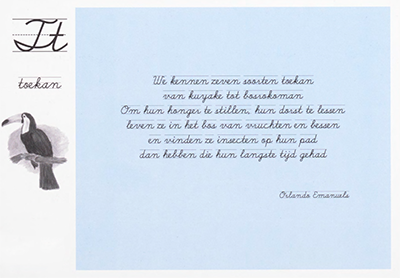 Tt
toekan
We kennen zeven soorten toekan
van kuyake tot bosrokoman
Om hun honger te stillen, hun dorst te lessen
leven ze in het bos van vruchten en bessen
en vinden ze insecten op hun pad
dan hebben die hun langste tijd gehad
Orlando Emanuels